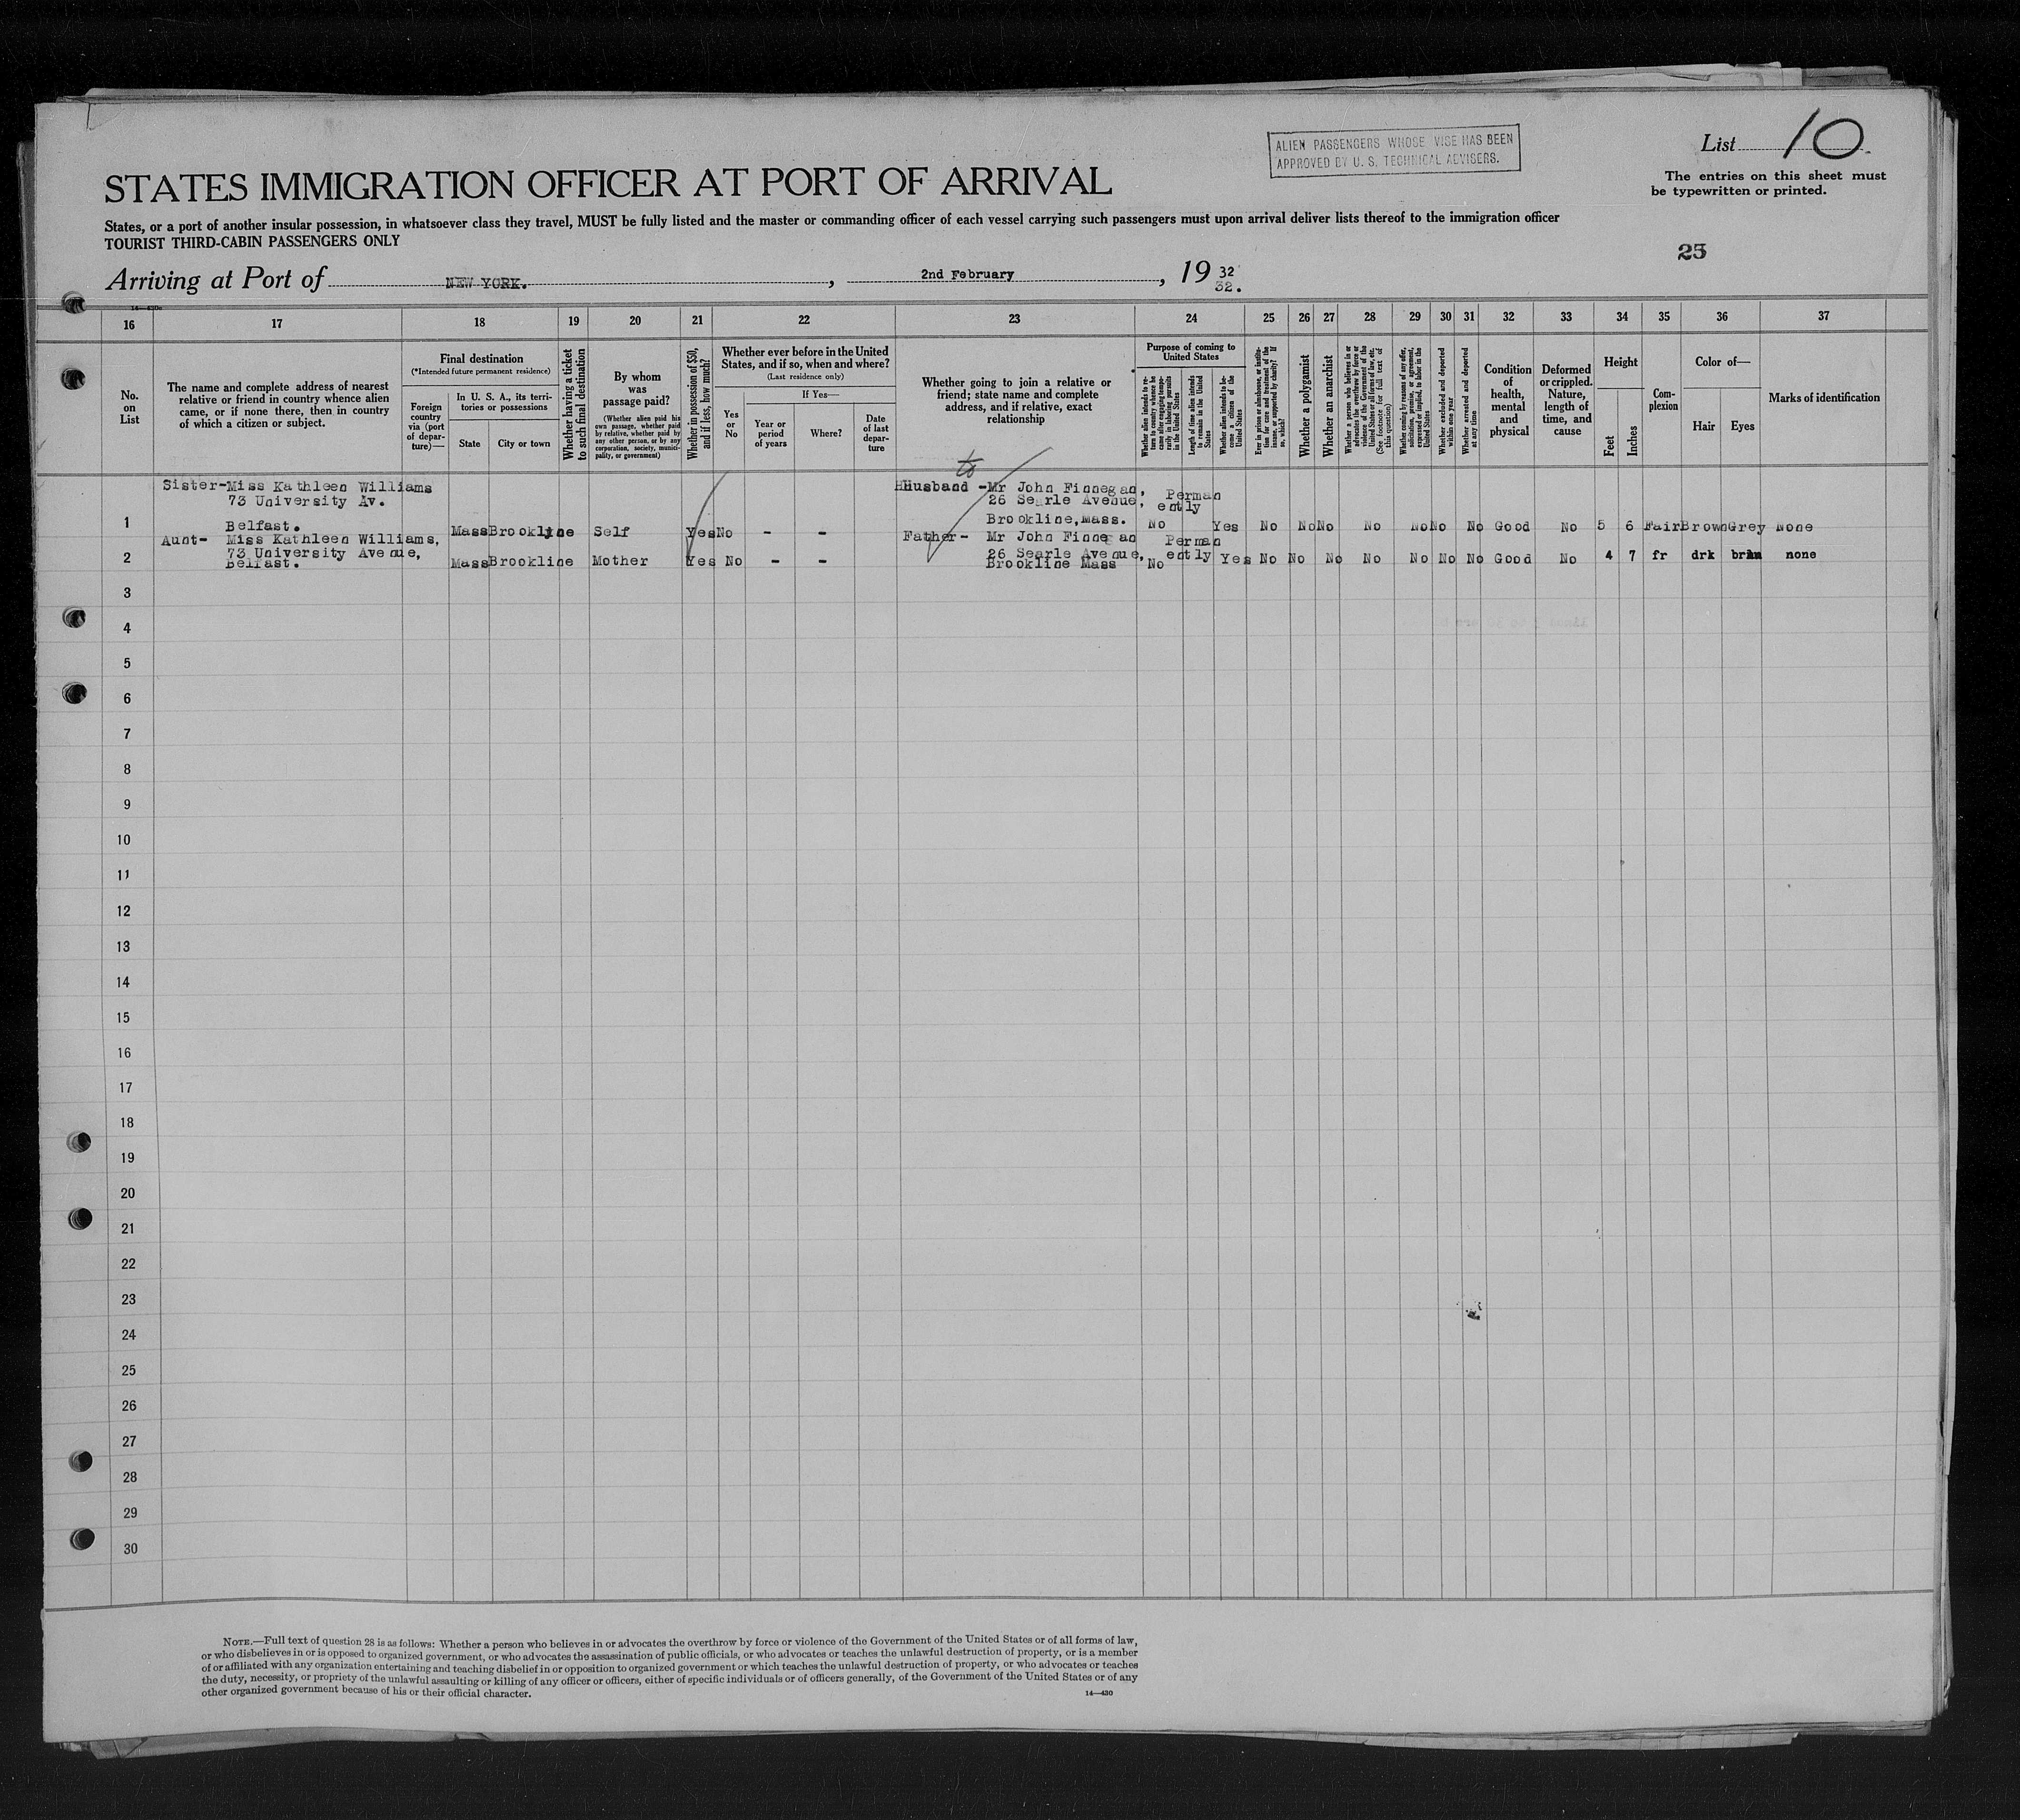 ALIEN PASSENGERS WHOSE VISE HAS BEEN
APPROVED BY U. S. TECHNICAL ADVISERS.
List 10
The entries on this sheet must
be typewritten or printed.
STATES IMMIGRATION OFFICER AT PORT OF ARRIVAL
States, or a port of another insular possession, in whatsoever class they travel, MUST be fully listed and the master or commanding officer of each vessel carrying such passengers must upon arrival deliver lists thereof to the immigration officer
TOURIST THIRD-CABIN PASSENGERS ONLY
25
Arriving at Port of NEW YORK. , 2nd February , 19 32
32.
16 17 18 19 20 21 22 23 24 25 26 27 28 29 30 31 32 33 34 35 36 37
No.
on
List
The name and complete address of nearest
relative or friend in country whence alien
came, or if none there, then in country
of which a citizen or subject.
Final destination
(*Intended future permanent residence)
Foreign
country
via (port
of depar-
ture)—
In U. S. A., its terri-
tories or possessions
State
City or town
Whether having a ticket
to such final destination
By whom
was
passage paid?
(Whether alien paid his
own passage, whether paid
by relative, whether paid by
any other person, or by any
corporation, society, munici-
pality, or government)
Whether in possession of $50,
and if less, how much?
Whether ever before in the United
States, and if so, when and where?
(Last residence only)
Yes
or
No
If Yes—
Year or
period
of years
Where?
Date
of last
depar-
ture
Whether going to join a relative or
friend; state name and complete
address, and if relative, exact
relationship
Purpose of coming to
United States
Whether alien intends to re-
turn to country whence he
came after engaging tempo-
rarily in laboring pursuits
in the United States
Length of time alien intends
to remain in the United
States
Whether alien intends to be-
come a citizen of the
United States
Ever in prison or almshouse, or institu-
tion for care and treatment of the
insane, or supported by charity? If
so, which?
Whether a polygamist
Whether an anarchist
Whether a person who believes in or
advocates the overthrow by force or
violence of the Government of the
United States or all forms of law, etc.
(See footnote for full text of
this question)
Whether coming by reason of any offer,
solicitation, promise, or agreement,
expressed or implied, to labor in the
United States
Whether excluded and deported
within one year
Whether arrested and deported
at any time
Condition
of
health,
mental
and
physical
Deformed
or crippled.
Nature,
length of
time, and
cause
Height
Feet
Inches
Com-
plexion
Color of—
Hair
Eyes
Marks of identification
to
Sister-Miss Kathleen Williams
73 University Av.
Belfast.
1 Mass Brookline Self Yes No - -
Husband -Mr John Finnegan,
26 Searle Avenue,
Brookline, Mass.
Perman
ently
No Yes No No No No No No No Good No 5 6 Fair Brown Grey None
Aunt- Miss Kathleen Williams,
73 University Avenue,
Belfast.
2 Mass Brookline Mother Yes No - -
Father- Mr John Finnegan
26 Searle Avenue,
Brookline Mass
Perman
ently
No Yes No No No No No No No Good No 4 7 fr drk brn none
3
4
5
6
7
8
9
10
11
12
13
14
15
16
17
18
19
20
21
22
23
24
25
26
27
28
29
30
NOTE.—Full text of question 28 is as follows: Whether a person who believes in or advocates the overthrow by force or violence of the Government of the United States or of all forms of law,
or who disbelieves in or is opposed to organized government, or who advocates the assassination of public officials, or who advocates or teaches the unlawful destruction of property, or is a member
of or affiliated with any organization entertaining and teaching disbelief in or opposition to organized government or which teaches the unlawful destruction of property, or who advocates or teaches
the duty, necessity, or propriety of the unlawful assaulting or killing of any officer or officers, either of specific individuals or of officers generally, of the Government of the United States or of any
other organized government because of his or their official character.
14—430